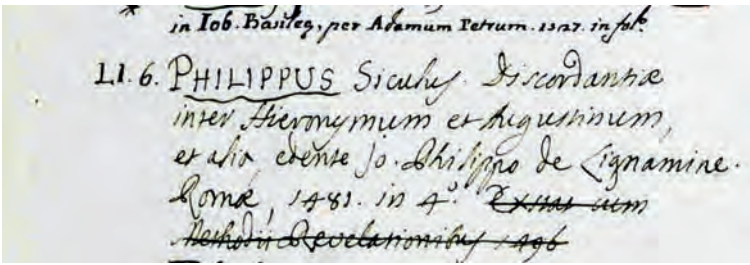 in Iob. Basileę, per Adamum Petrum. 1527. in folº.
LI. 6. PHILIPPUS Siculus. Discordantiæ
inter Hieronymum et Augustinum,
et alia edente Jo. Philippo de Lignamine.
Romæ, 1481. in 4º. Exstat cum
Methodii Revelationibus 1496